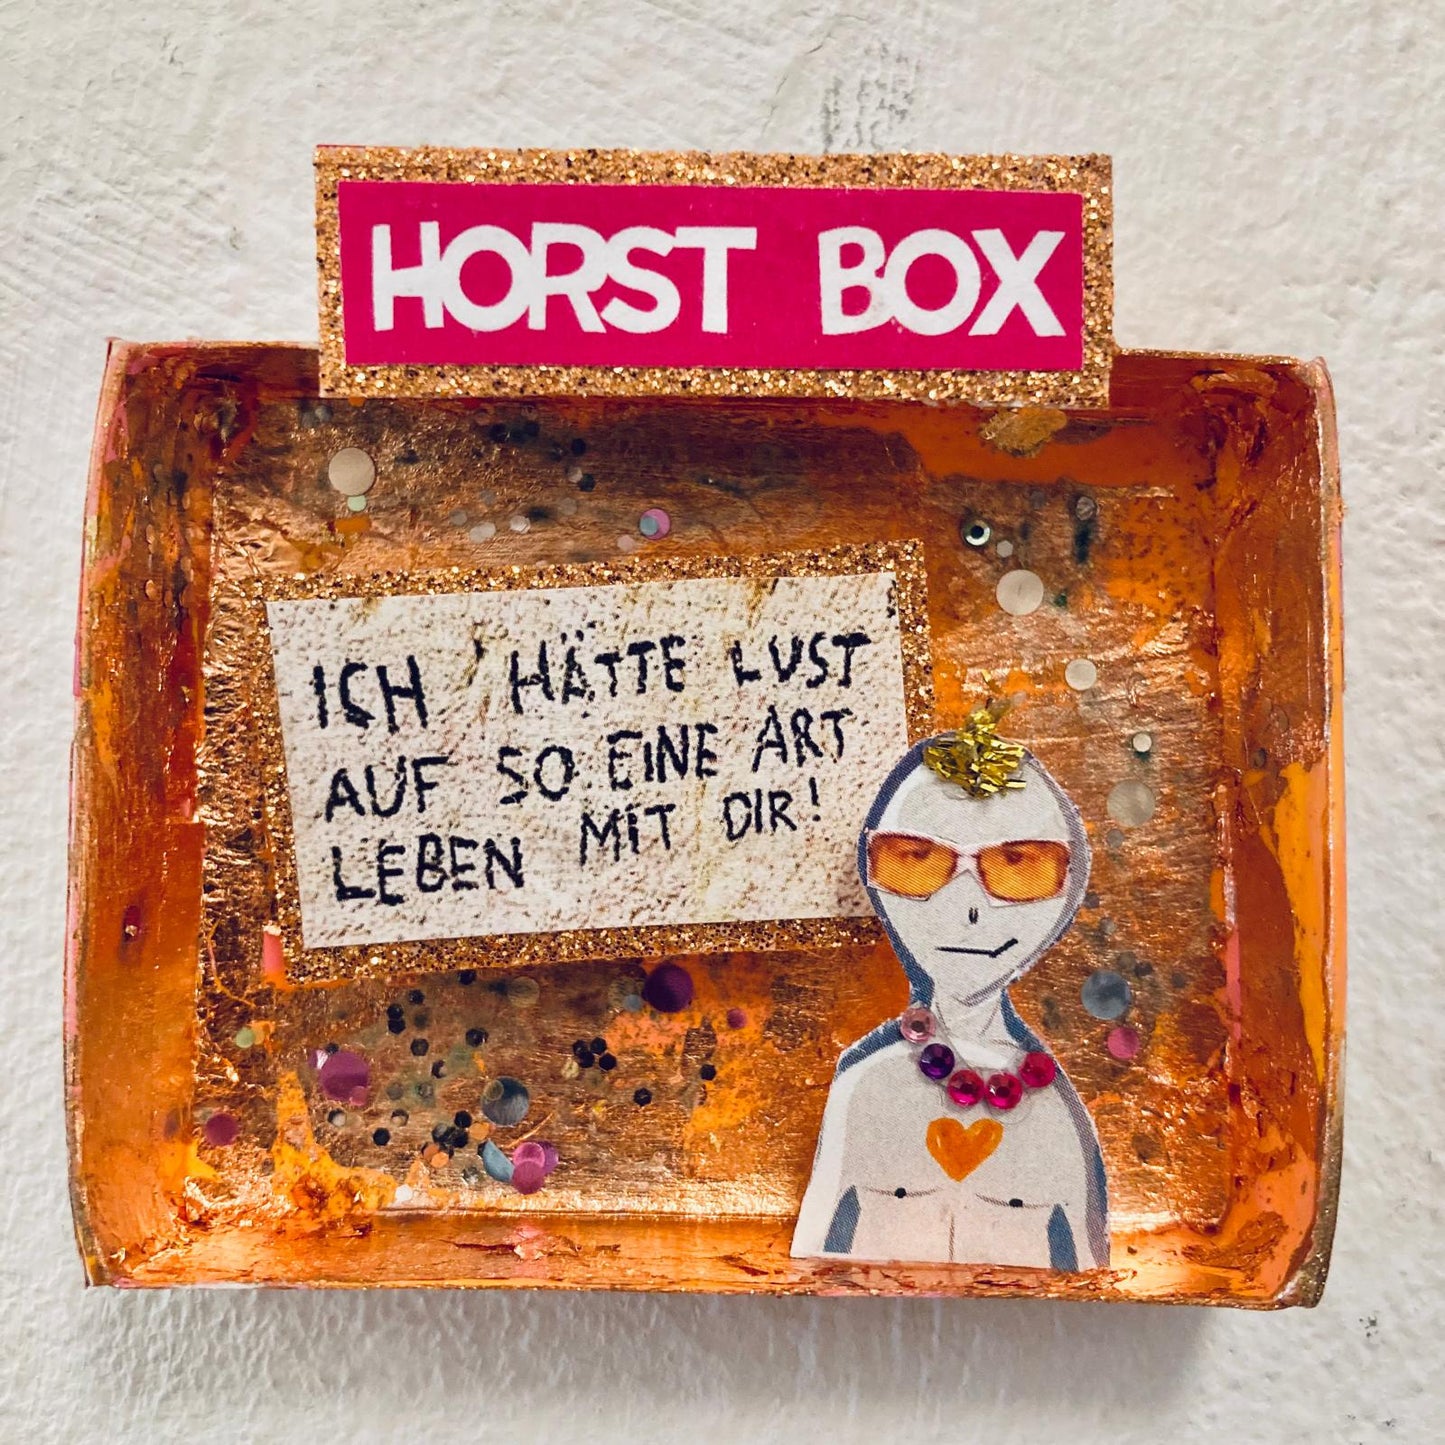 HORST BOX
ICH HÄTTE LUST
AUF SO EINE ART
LEBEN MIT DIR!